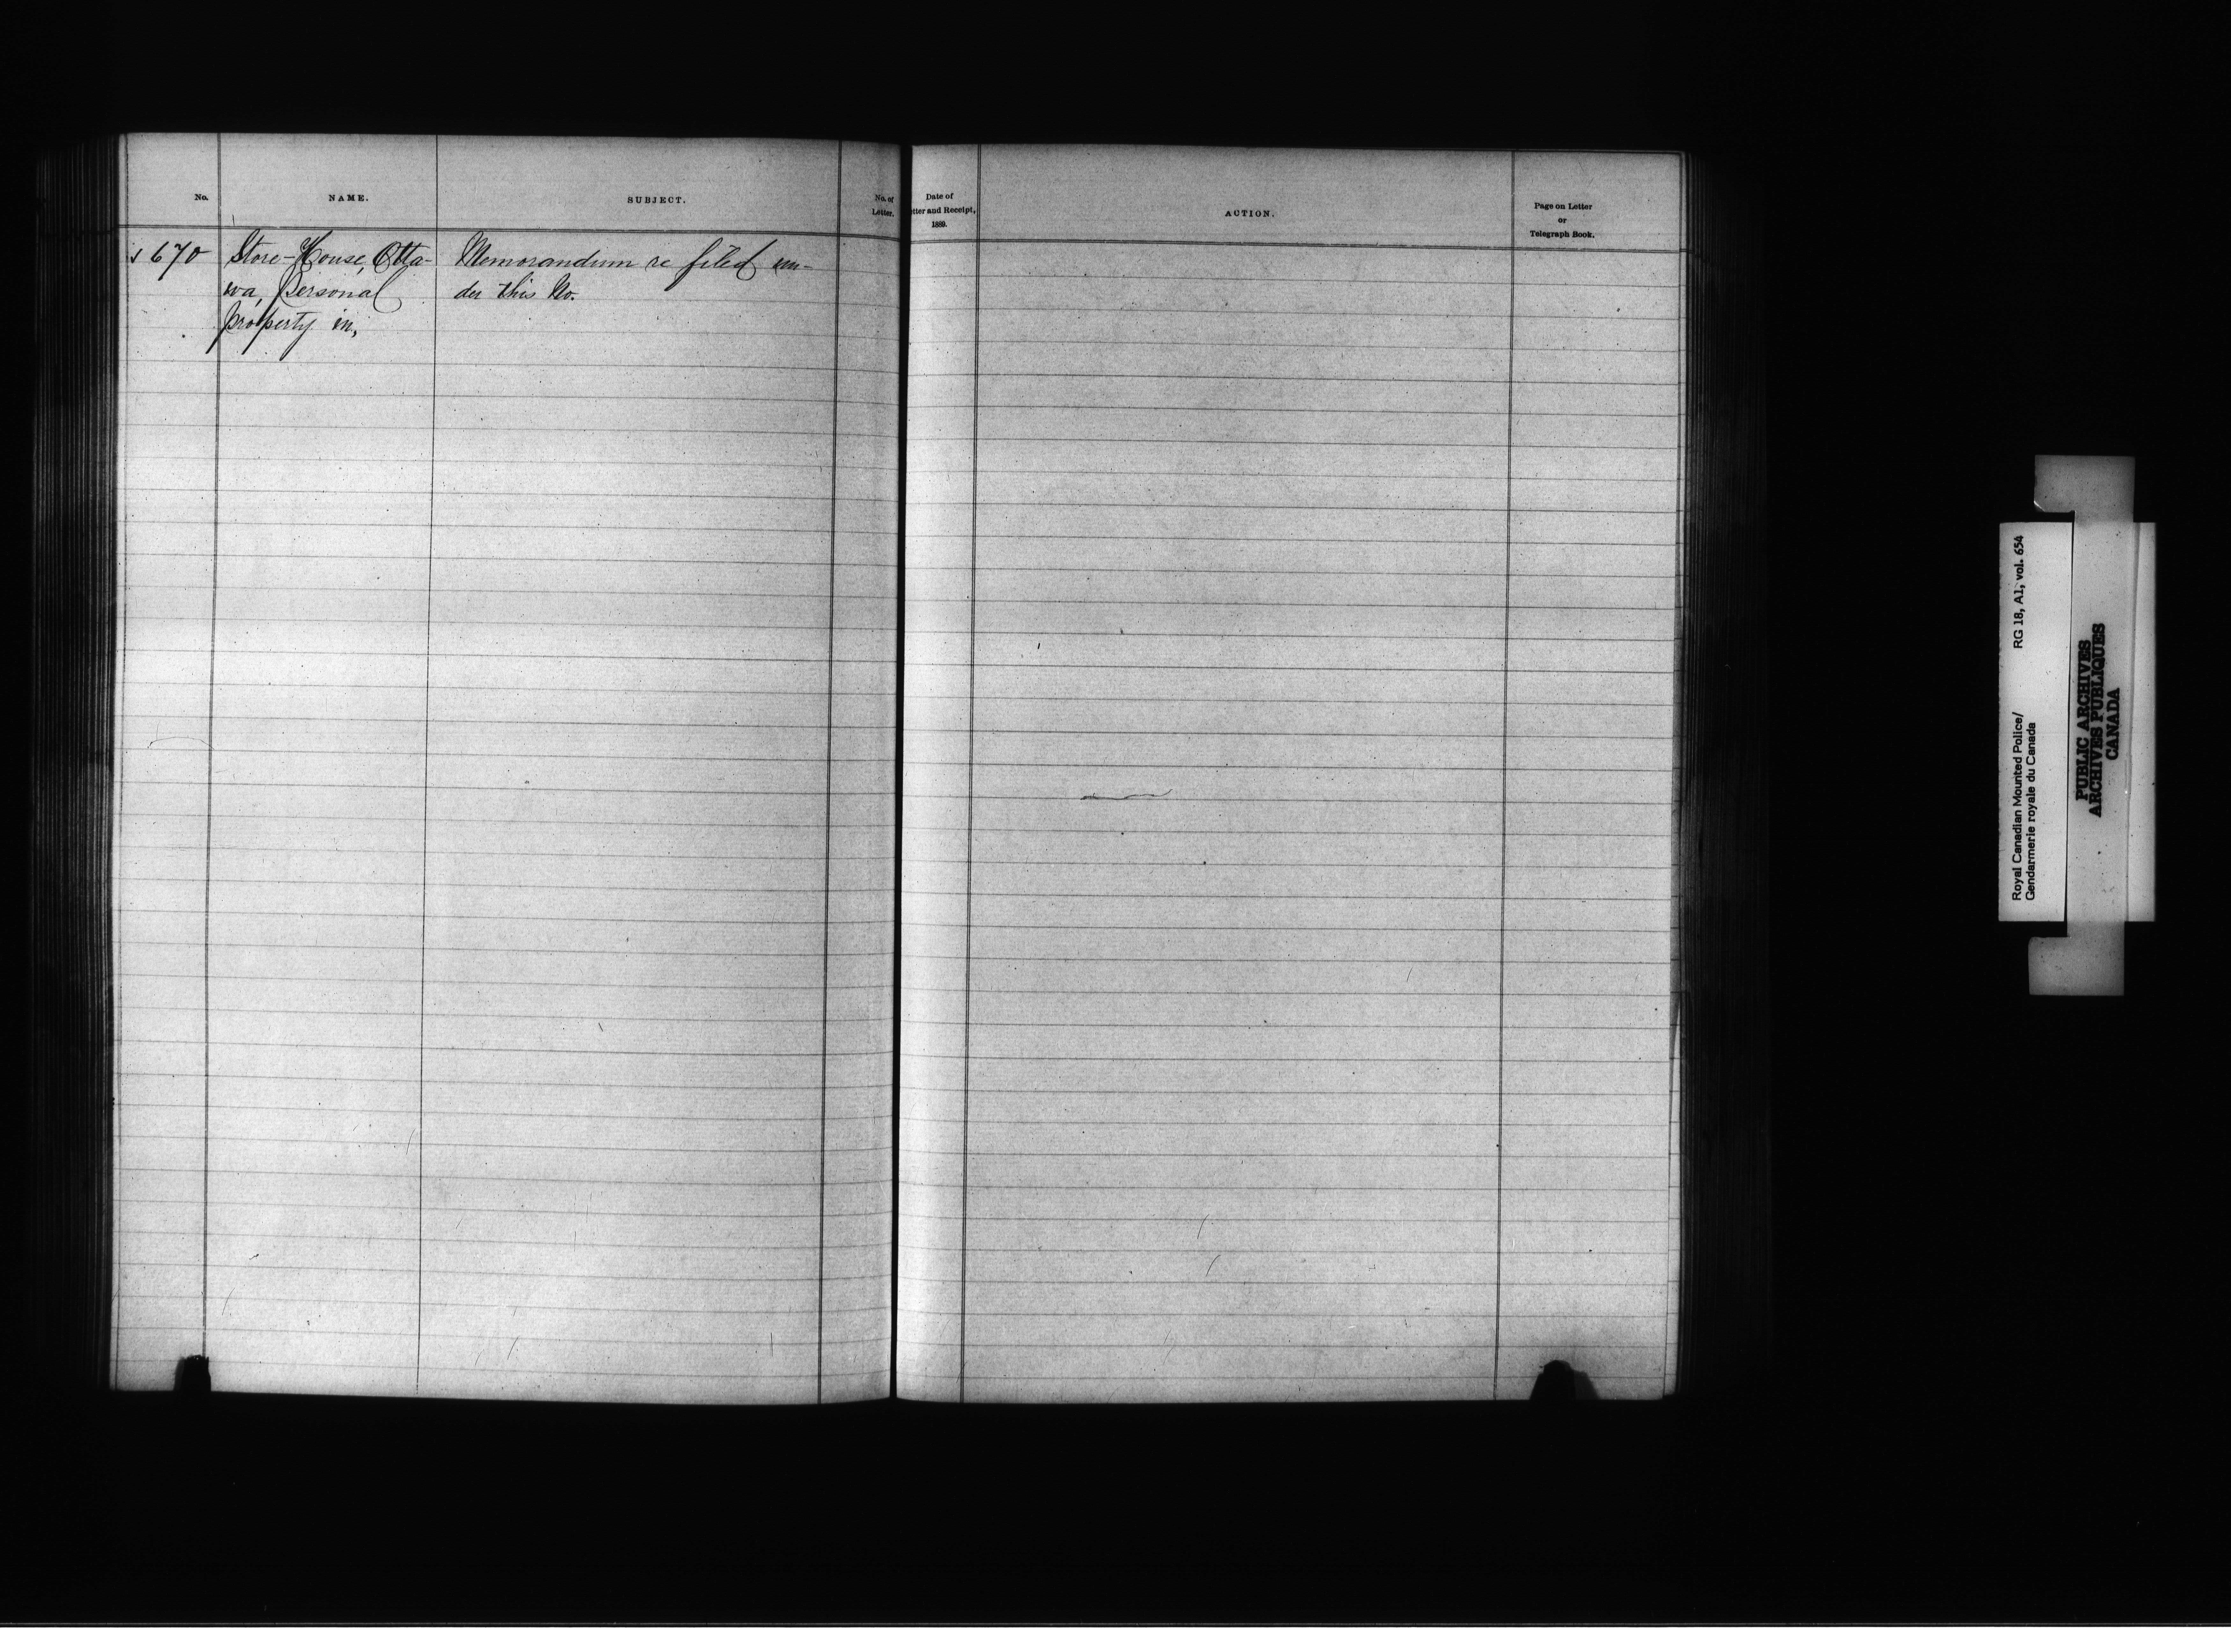 No.
NAME.
SUBJECT.
No. of
Letter.
Date of
tter and Receipt,
1889.
ACTION.
Page on Letter
or
Telegraph Book.
670
Store-House, Otta-
wa, personal
property in,
Memorandum re filed un-
der this No.
Royal Canadian Mounted Police/ RG 18, A1, vol. 654
Gendarmerie royale du Canada
PUBLIC ARCHIVES
ARCHIVES PUBLIQUES
CANADA